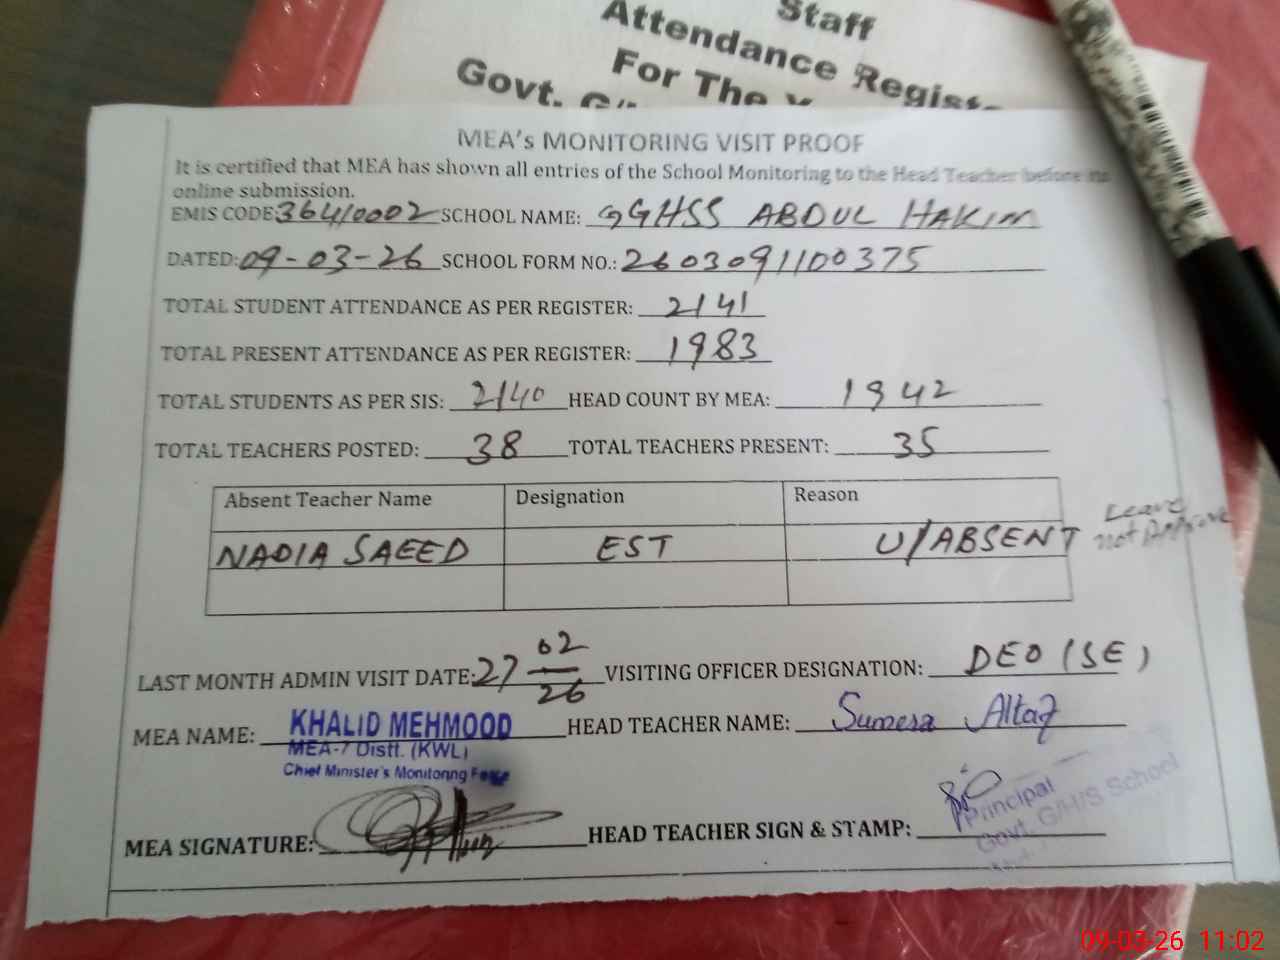 Staff
Attendance Regist
For The Y
Govt. G/
MEA's MONITORING VISIT PROOF
It is certified that MEA has shown all entries of the School Monitoring to the Head Teacher before its
online submission.
EMIS CODE 36410002 SCHOOL NAME: GGHSS ABDUL HAKIM
DATED: 09-03-26 SCHOOL FORM NO.: 2603091100375
TOTAL STUDENT ATTENDANCE AS PER REGISTER: 2141
TOTAL PRESENT ATTENDANCE AS PER REGISTER: 1983
TOTAL STUDENTS AS PER SIS: 2140 HEAD COUNT BY MEA: 1942
TOTAL TEACHERS POSTED: 38 TOTAL TEACHERS PRESENT: 35
Absent Teacher Name Designation Reason
NADIA SAEED EST U/ABSENT Leave
not Approve
LAST MONTH ADMIN VISIT DATE: 27 02/26 VISITING OFFICER DESIGNATION: DEO (SE)
MEA NAME: KHALID MEHMOOD HEAD TEACHER NAME: Sumera Altaf
MEA-7 Distt. (KWL)
Chief Minister's Monitoring Force
MEA SIGNATURE: HEAD TEACHER SIGN & STAMP:
Principal
Govt. G/H/S School
09-03-26 11:02